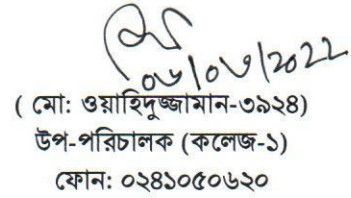 ( মো: ওয়াহিদুজ্জামান-৩৯২৪)
উপ-পরিচালক (কলেজ-১)
ফোন: ০২৪১০৫০৬২০